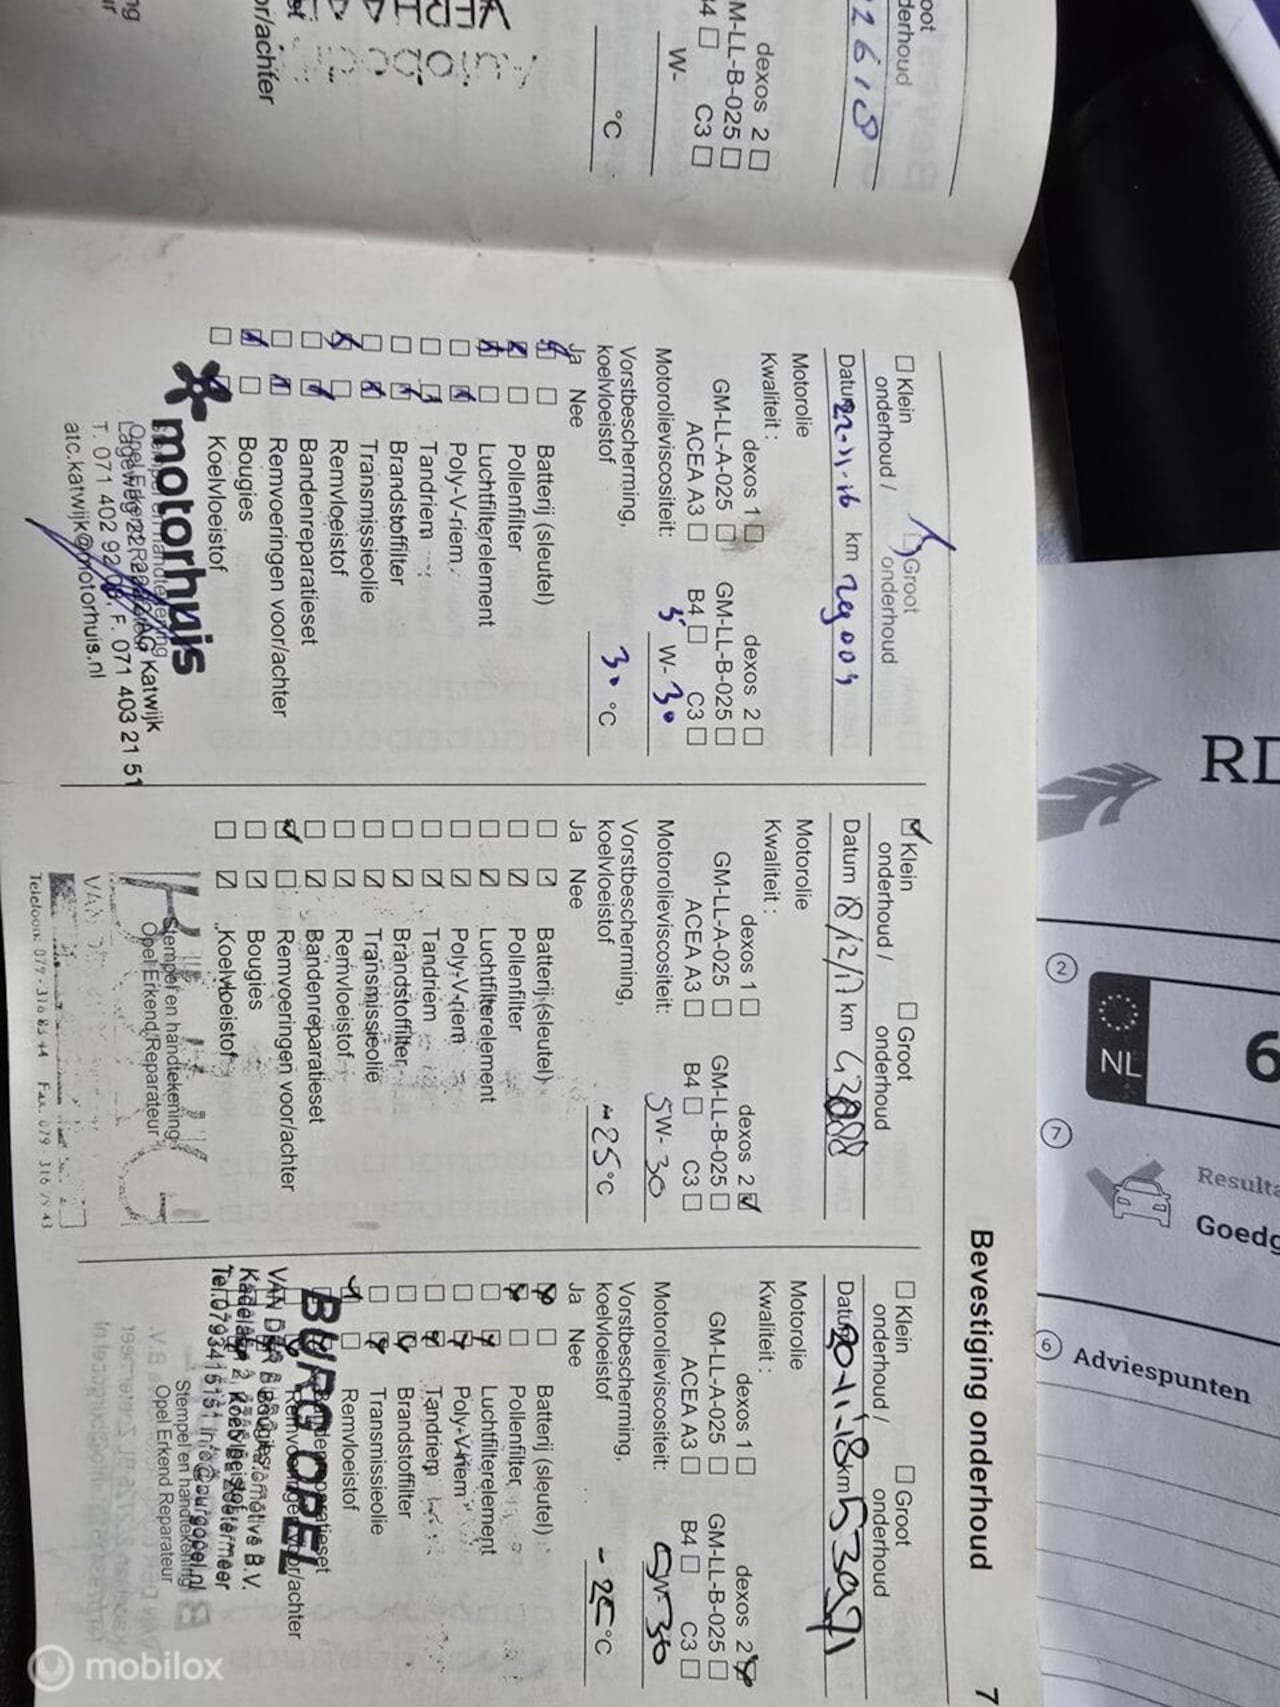 oot
derhoud
22618
dexos 2
M-LL-B-025
34 C3
W-
°C
or/achter
Bevestiging onderhoud
7
Klein onderhoud / Groot onderhoud
Datum 22-11-16 km 29009
Motorolie
Kwaliteit :
dexos 1 dexos 2
GM-LL-A-025 GM-LL-B-025
ACEA A3 B4 C3
Motorolieviscositeit: 5 W- 30
Vorstbescherming,
koelvloeistof 30 °C
Ja Nee
Batterij (sleutel)
Pollenfilter
Luchtfilterelement
Poly-V-riem
Tandriem
Brandstoffilter
Transmissieolie
Remvloeistof
Bandenreparatieset
Remvoeringen voor/achter
Bougies
Koelvloeistof
motorhuis
Katwijk
T. 071 402 92 F. 071 403 21 51
atc.katwijk@motorhuis.nl
Klein onderhoud / Groot onderhoud
Datum 18/12/17 km
Motorolie
Kwaliteit :
dexos 1 dexos 2
GM-LL-A-025 GM-LL-B-025
ACEA A3 B4 C3
Motorolieviscositeit: 5W-30
Vorstbescherming,
koelvloeistof -25°C
Ja Nee
Batterij (sleutel)
Pollenfilter
Luchtfilterelement
Poly-V-riem
Tandriem
Brandstoffilter
Transmissieolie
Remvloeistof
Bandenreparatieset
Remvoeringen voor/achter
Bougies
Koelvloeistof
Stempel en handtekening
Opel Erkend Reparateur
Klein onderhoud / Groot onderhoud
Datum 20-11-18 km 53091
Motorolie
Kwaliteit :
dexos 1 dexos 2
GM-LL-A-025 GM-LL-B-025
ACEA A3 B4 C3
Motorolieviscositeit: 5W-30
Vorstbescherming,
koelvloeistof -25°C
Ja Nee
Batterij (sleutel)
Pollenfilter
Luchtfilterelement
Poly-V-riem
Tandriem
Brandstoffilter
Transmissieolie
Remvloeistof
BURG OPEL
Bougies
Koelvloeistof
Zoetermeer
Tel.0793415151 info@burgopel.nl
Stempel en handtekening
Opel Erkend Reparateur
RD
2
NL
6
7
Result
Goedg
6
Adviespunten
mobilox